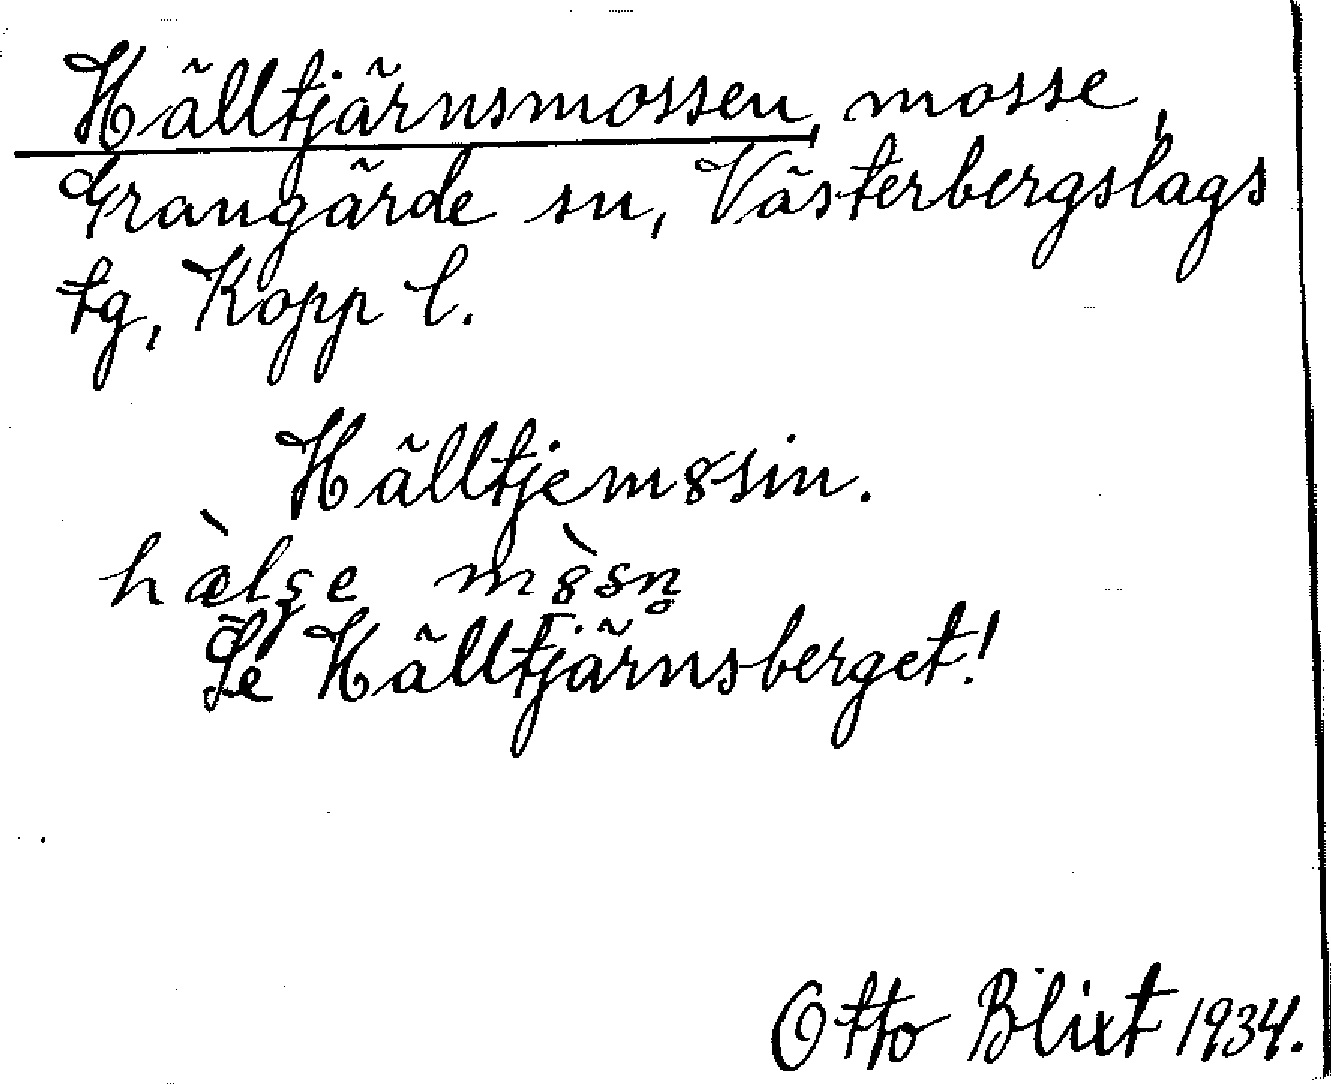 Hälltjärnsmossen, mosse,
Grangärde sn, Västerbergslags
tg, Kopp l.
Hälltjem8sin.
hæ̀lʂe m8̀sn̥
Se Hälltjärnsberget!
Otto Blixt 1934.